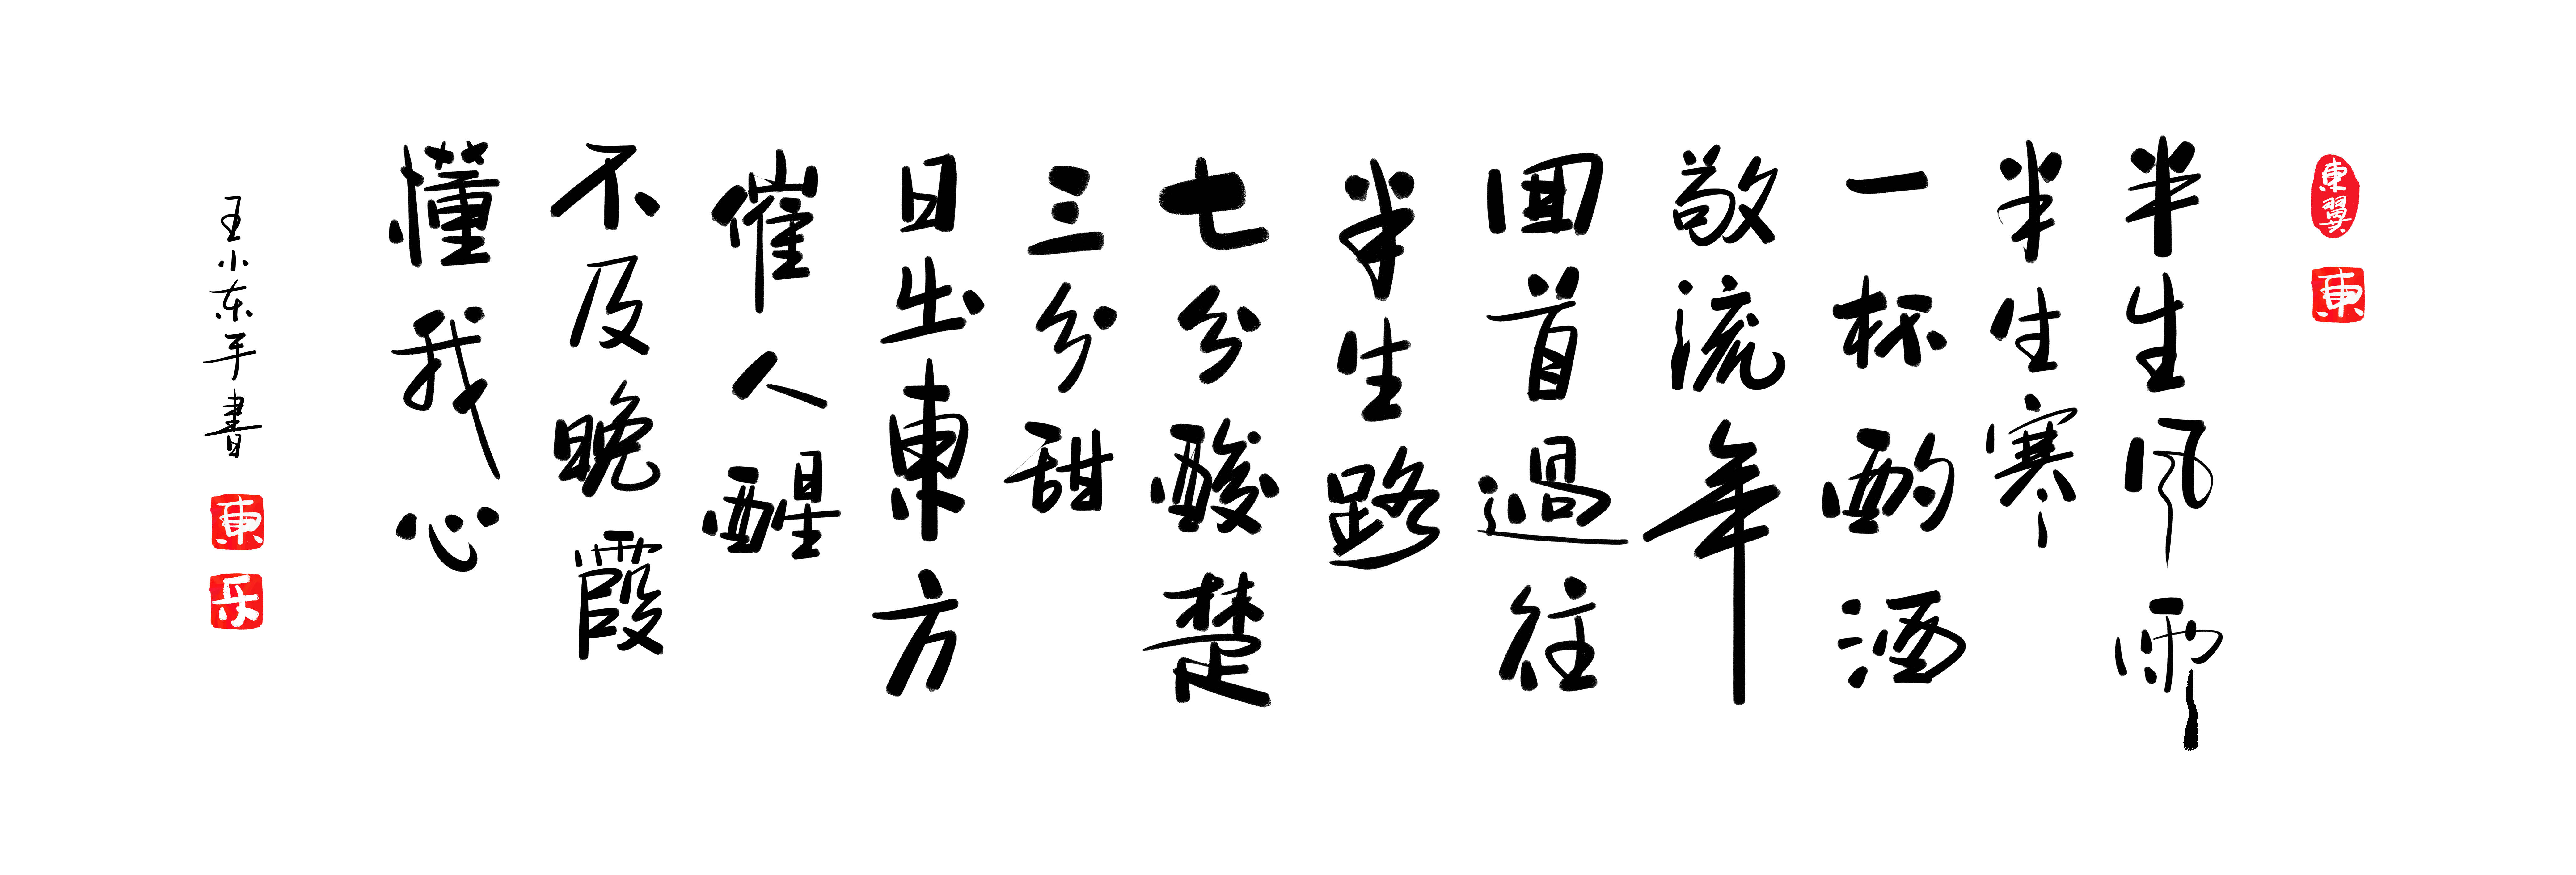 東翼
東
半生风雨
半生寒
一杯酌酒
敬流年
回首過往
半生路
七分酸楚
三分甜
日出東方
催人醒
不及晚霞
懂我心
王小东手書
東
乐